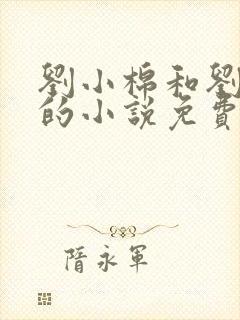 劉小棉和劉
的小說免費
隋永軍